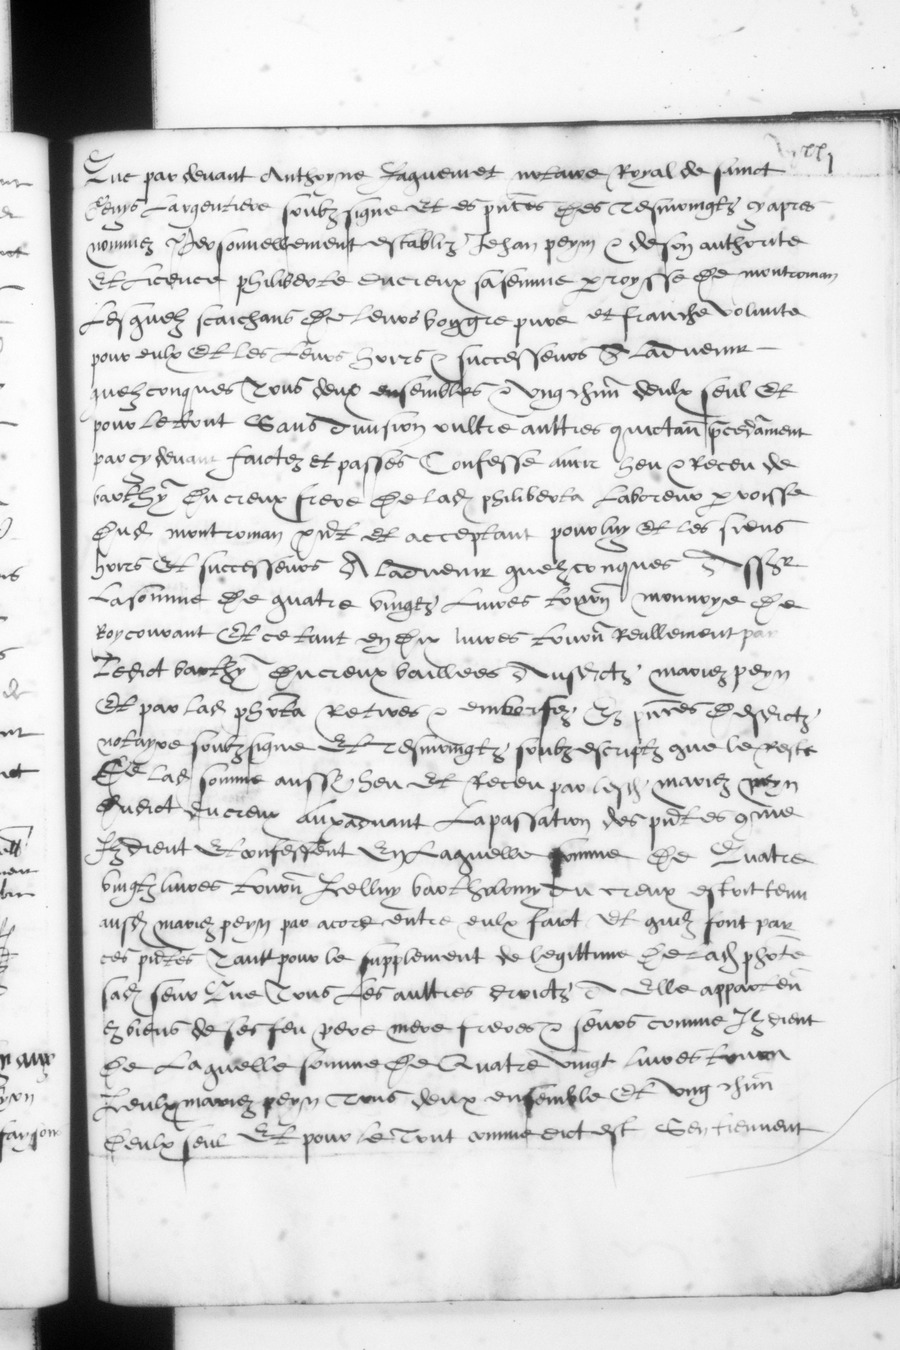 Que par devant Anthoyne Faguemet notaire Royal de sainct
Genys Largentiere soubzsigne et es pntes des tesmoingtz cy apres
nommez Personnellement establiz Jehan peyn & de son authorite
Et licence philiberte ducreux sa femme parroysse de montroman
Lesquelz scaichans de leurs bon gre pure et franche volunte
pour eulx Et les Leurs hoirs & successeurs A Ladvenir
quelzconques Tous deux ensembles & ung chun deulx seul Et
pour le tout Sans division oultre aultres quictan precedament
par cy devant faictez et passes Confesse avoir heu & Receu de
barthy Ducreux frere de lad philiberta Laboreur parroisse
dud montroman pnt et acceptant pour luy Et les siens
hoirs Et successeurs A ladvenir quelzconques Assr
La somme de quatre vingtz Livres tourn monnoye de
Roy courant Et ce tant en dix livres tourn Reallement par
Ledict barthy Ducreux baillees Ausdictz mariez peyn
Et par lad phberta Retires & emborsez Ez pntes desdictz
notayre soubzsigne Et tesmoingtz soubz escriptz que le Reste
De lad somme aussy heu Et Receu par lesd mariez peyn
dudict ducreux auparadvant La passation des pntes comme
Ilz dient Et confessent En Laquelle somme de Quatre
vingtz livres tourn Icelluy barthelomy du creux estoit tenu
ausd mariez peyn par acord entre eulx faict Et quilz font par
ces pntes Tant pour le supplement de legittime de lad phberte
sad seur Que Tous Les aultres droictz A Elle apparten
Ez biens de ses feu pere mere freres & seurs comme Ilz dient
De Laquelle somme de Quatre vingt livres tourn
Iceulx mariez peyn Tous deux ensemble Et ung chun
deulx seul Et pour le Tout comme dict est Sen tiennent